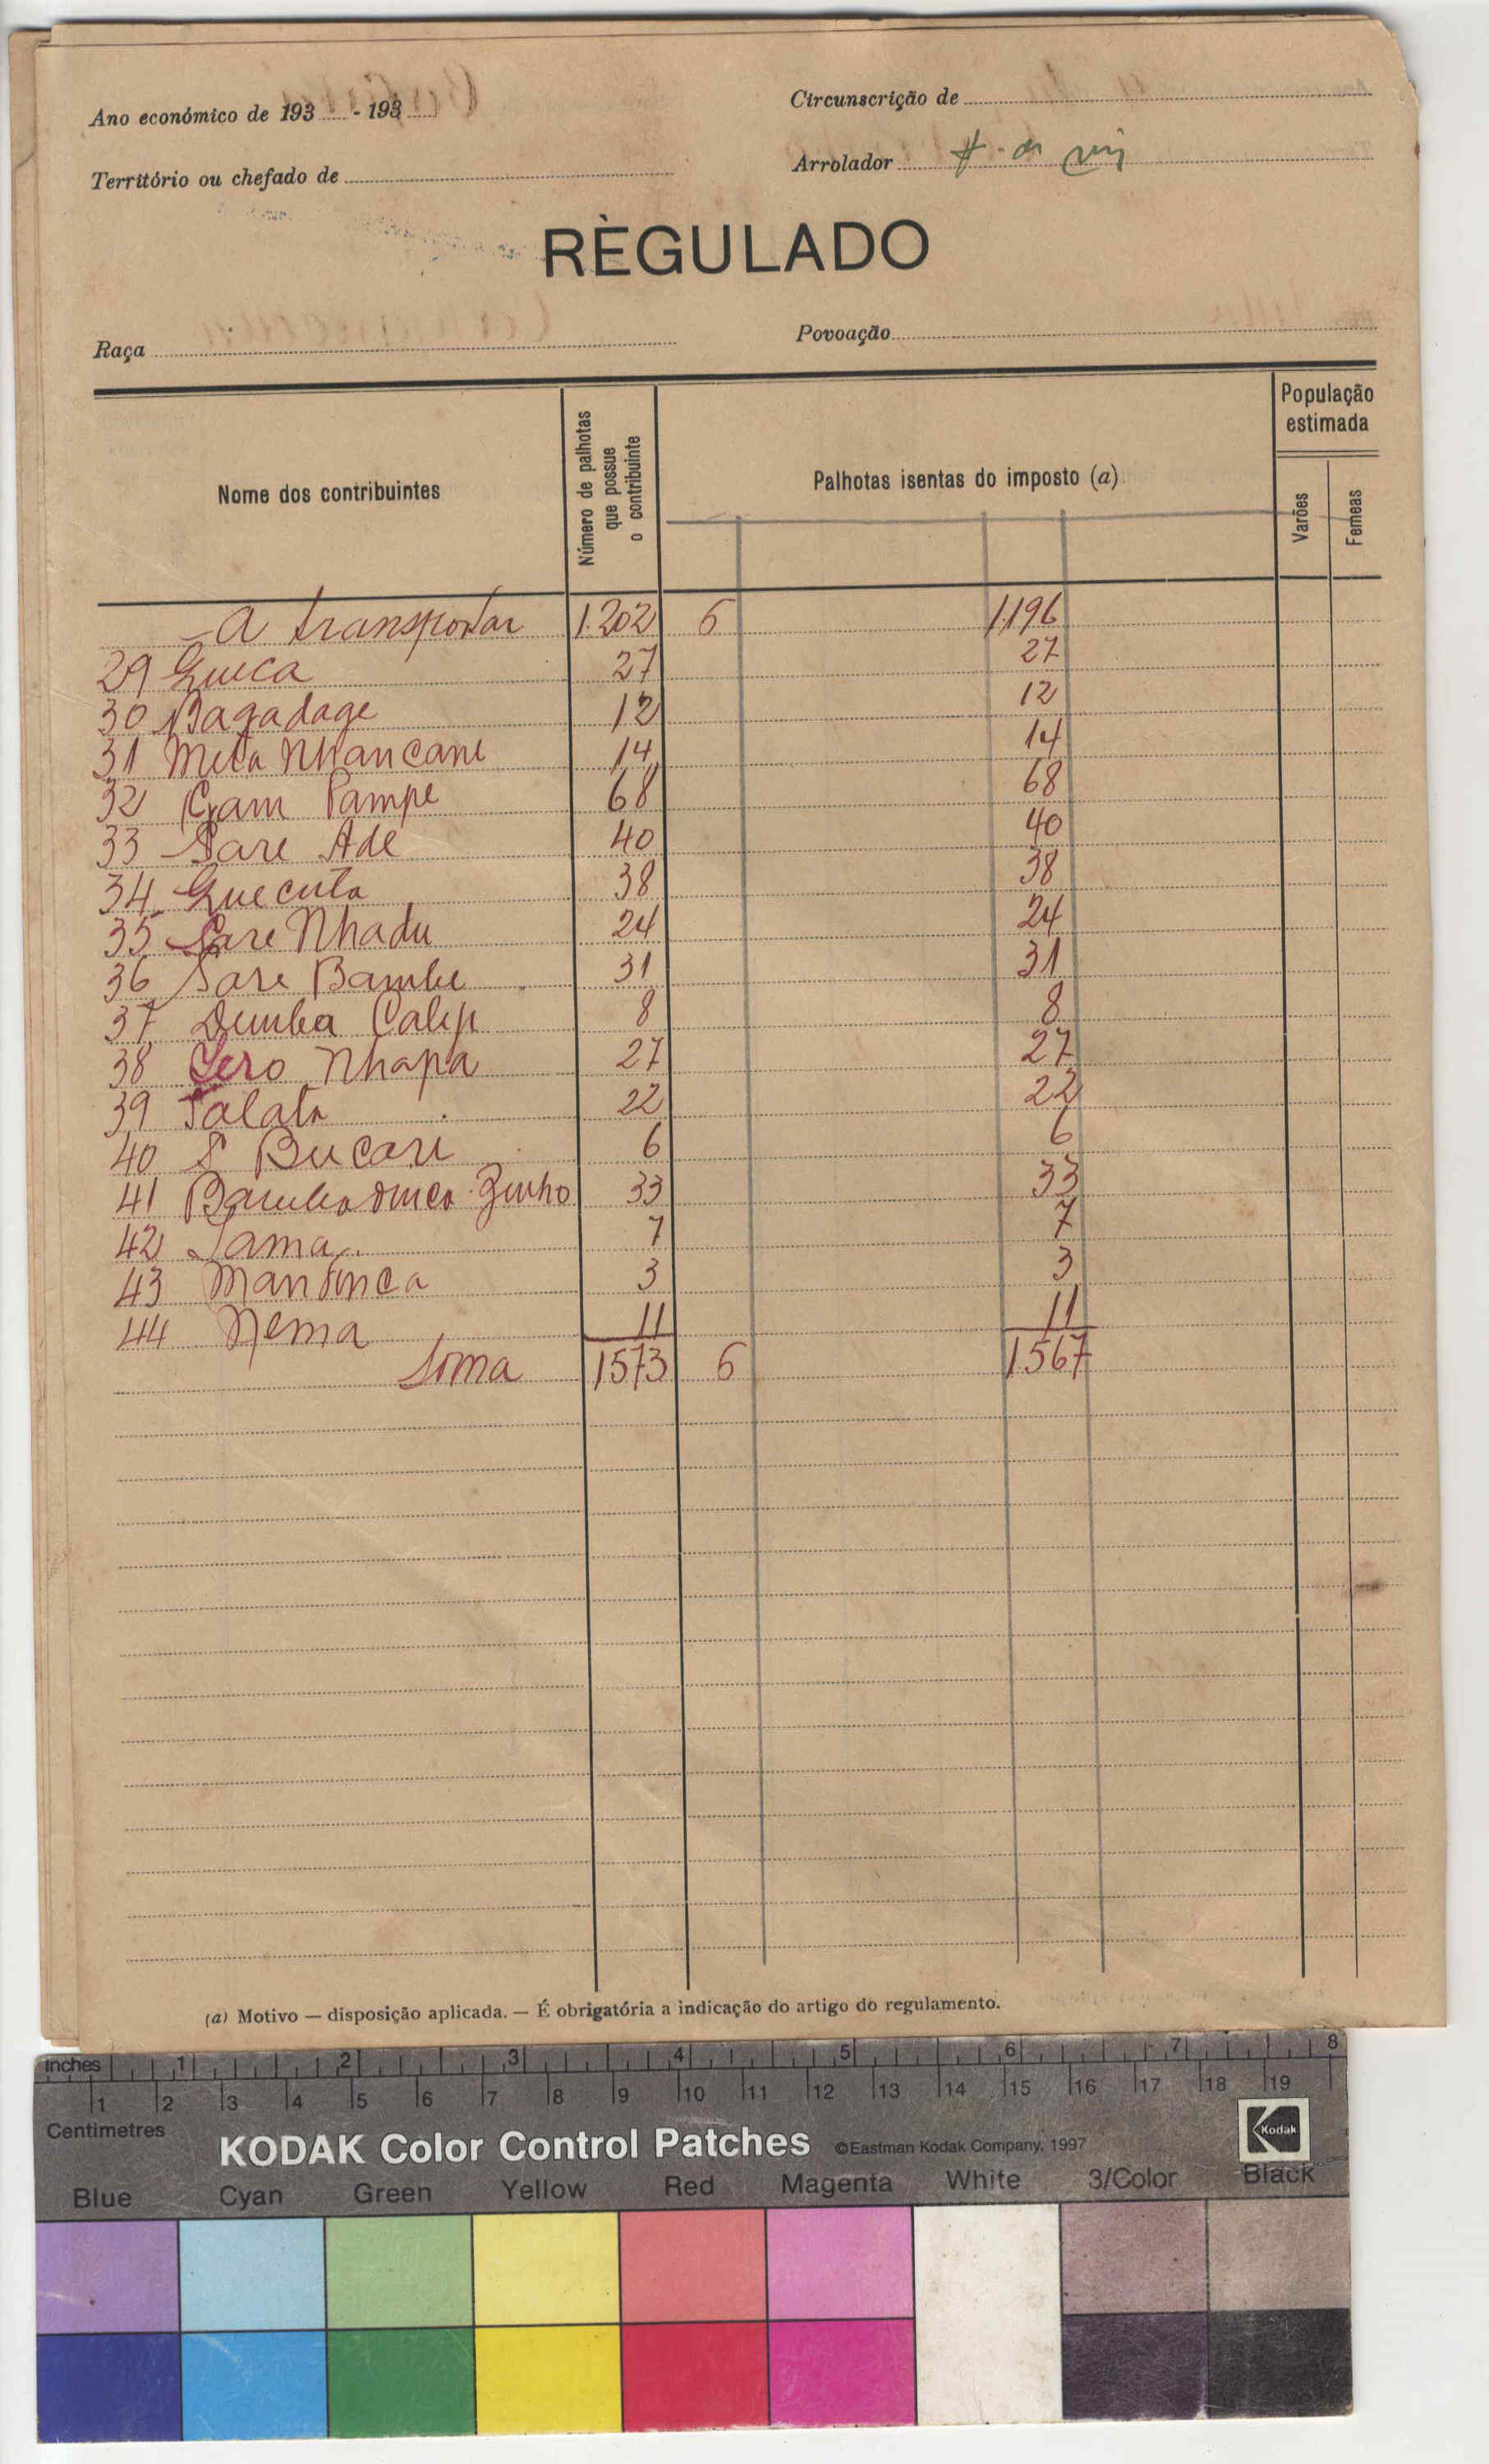 Ano económico de 193 - 193
Circunscrição de
Território ou chefado de
Arrolador
RÈGULADO
Raça
Povoação
Nome dos contribuintes
Número de palhotas que possue o contribuinte
Palhotas isentas do imposto (a)
População estimada
Varões
Femeas
A transportar 1.202 6 1.196
29 Gueca 27 27
30 Bagadage 12 12
31 Meta Nhancane 14 14
32 Gam Pampe 68 68
33 Sare Ade 40 40
34 Guecuta 38 38
35 Sare Nhadu 24 24
36 Sare Bambe 31 31
37 Demba 8 8
38 Sero Nhapa 27 27
39 Talata 22 22
40 S Bucari 6 6
41 Bambadinca Zinho 33 33
42 Sama 7 7
43 Mandinca 3 3
44 Nema 11 11
Soma 1573 6 1.567
(a) Motivo — disposição aplicada. — É obrigatória a indicação do artigo do regulamento.
inches 1 2 3 4 5 6 7 8
1 2 3 4 5 6 7 8 9 10 11 12 13 14 15 16 17 18 19
Centimetres
KODAK Color Control Patches ©Eastman Kodak Company, 1997
Kodak
Blue Cyan Green Yellow Red Magenta White 3/Color Black